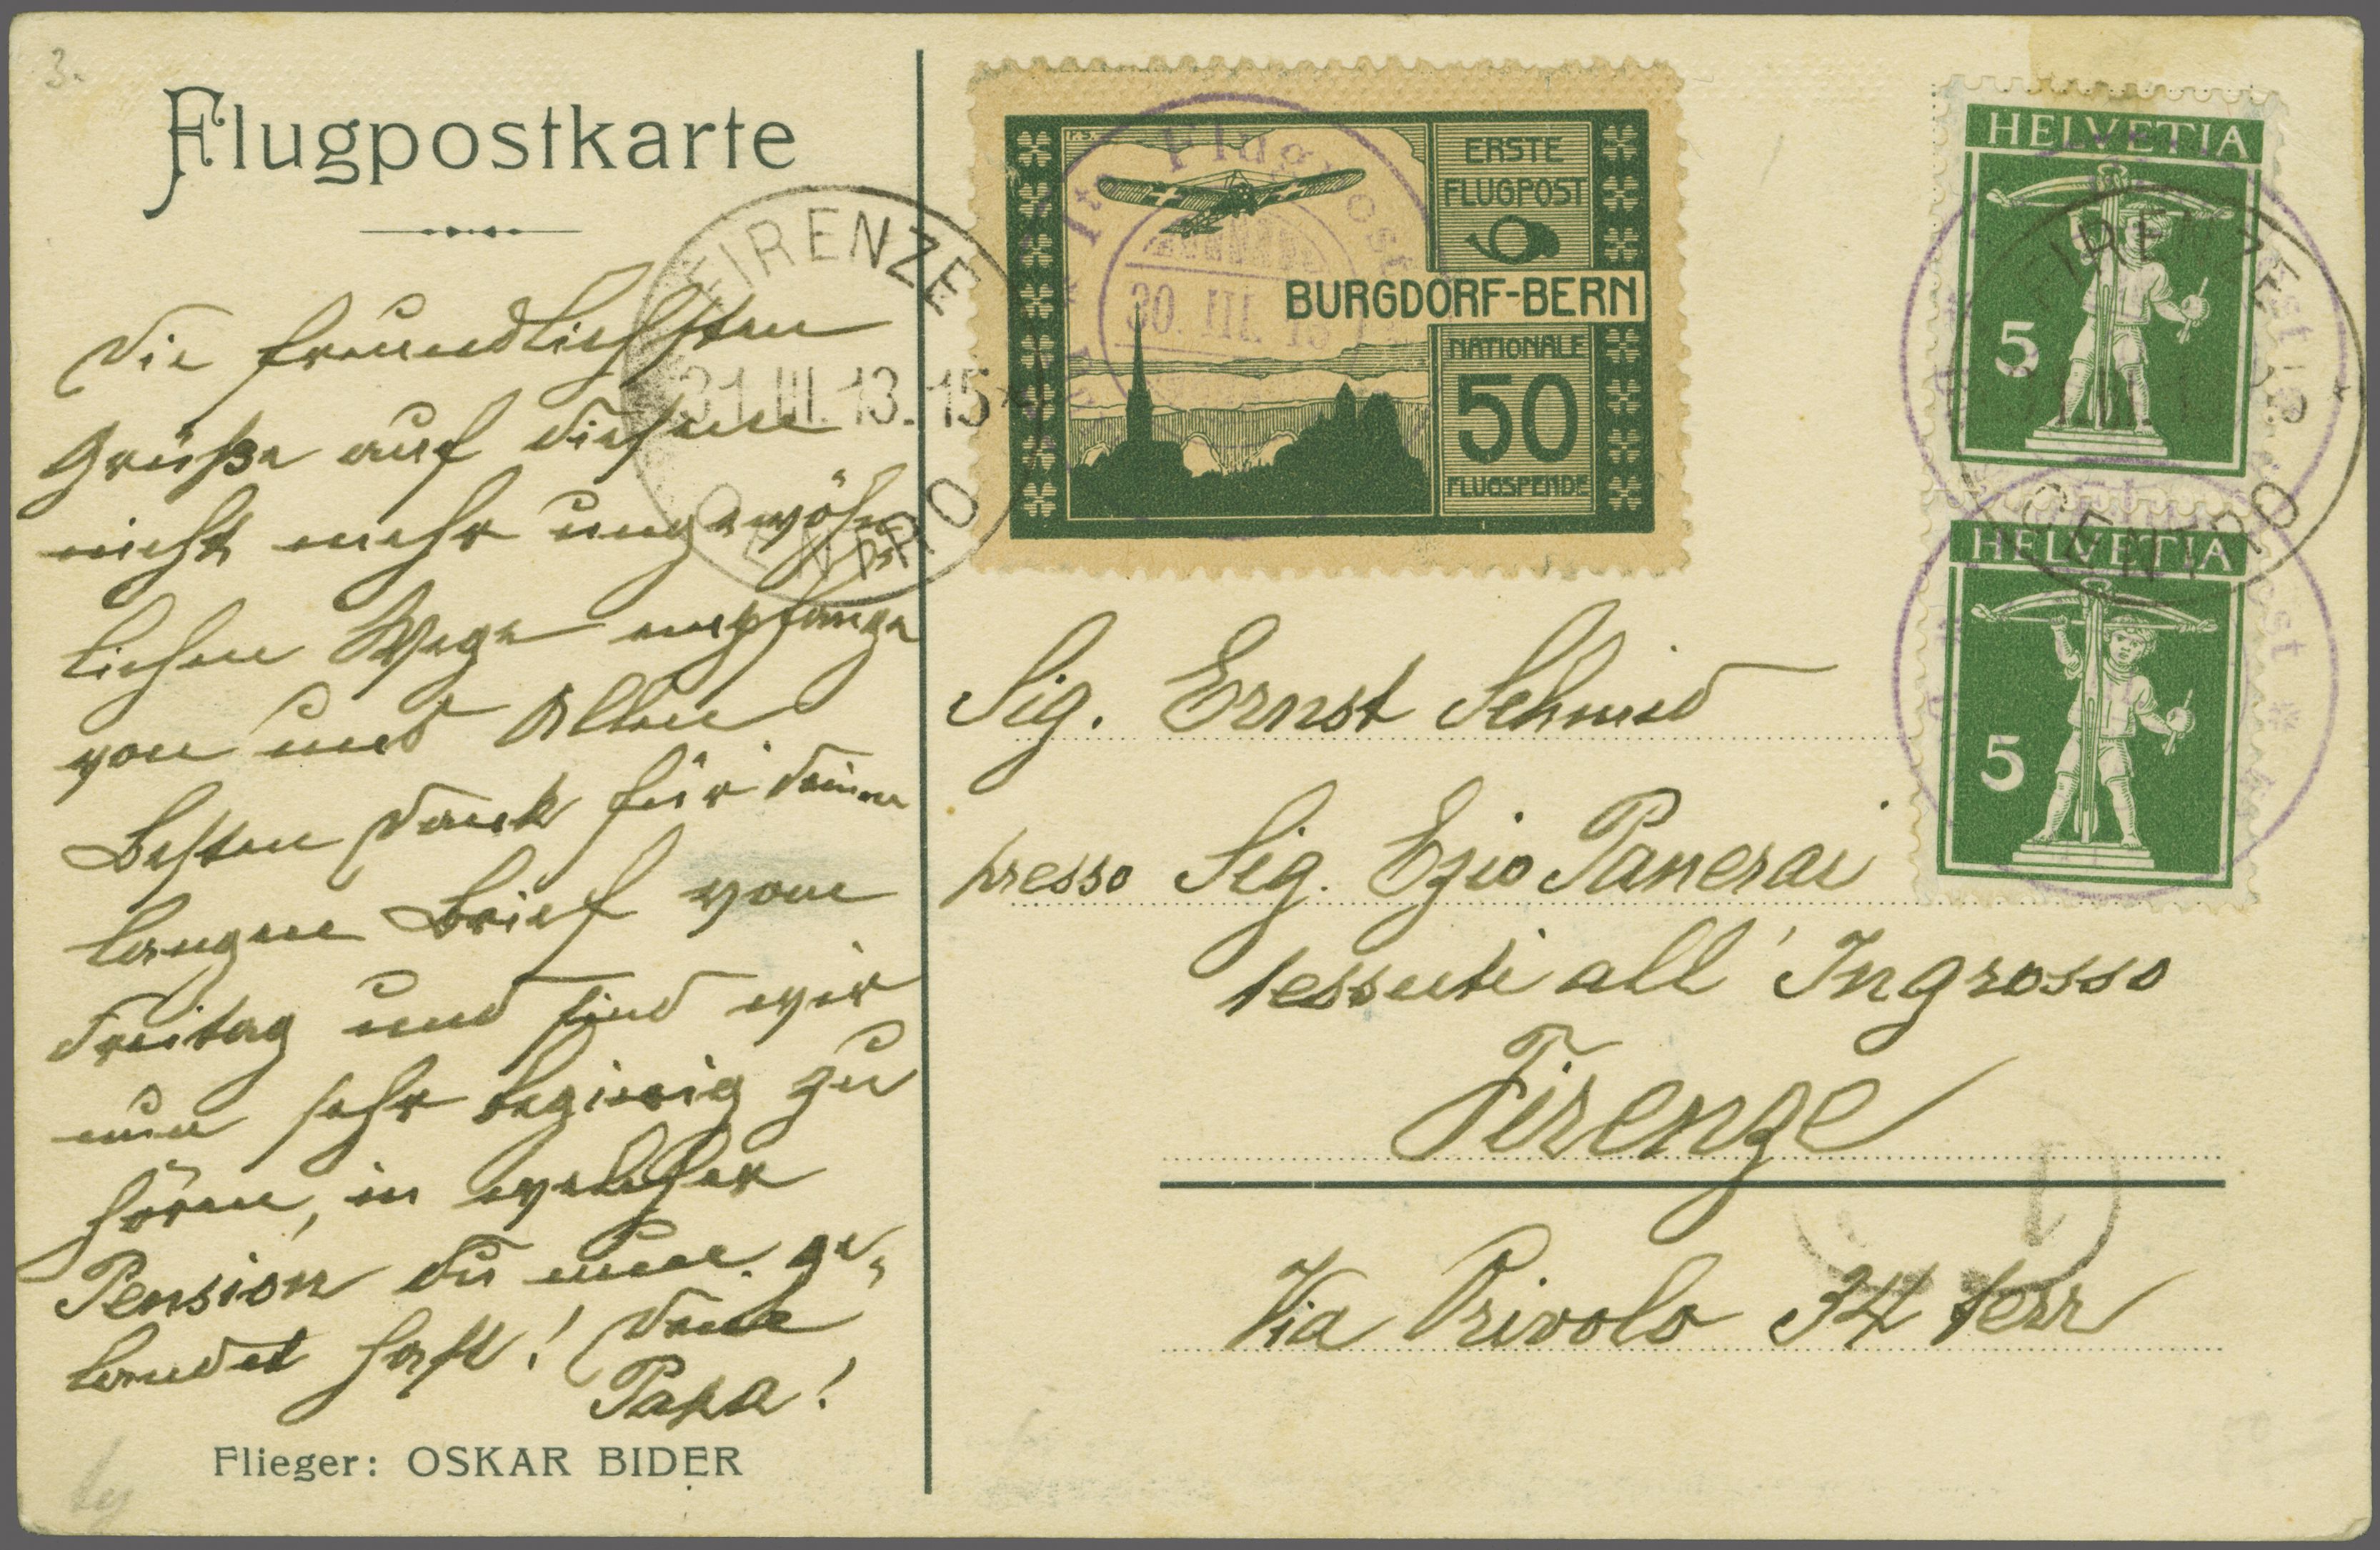 3.
Flugpostkarte
Die freundlichsten
Grüße auf diesem
nicht mehr ungewöhn
lichen Wege empfange
von uns Allen
Besten Dank für Deinen
langen Brief vom
Freitag und sind wir
nun sehr begierig zu
hören, in welcher
Pension Du nun ge-
landet hast! Dein
Papa!
Flieger: OSKAR BIDER
FIRENZE
31.III.13.15
CENTRO
ERSTE
FLUGPOST
BURGDORF-BERN
NATIONALE
50
FLUGSPENDE
Flugpost
30. III. 13
HELVETIA
5
FIRENZE
CENTRO
HELVETIA
5
Sig. Ernst Schmid
presso Sig. Ezio Panerai
tessuti all' Ingrosso
Firenze
Via Privolo 34 terr